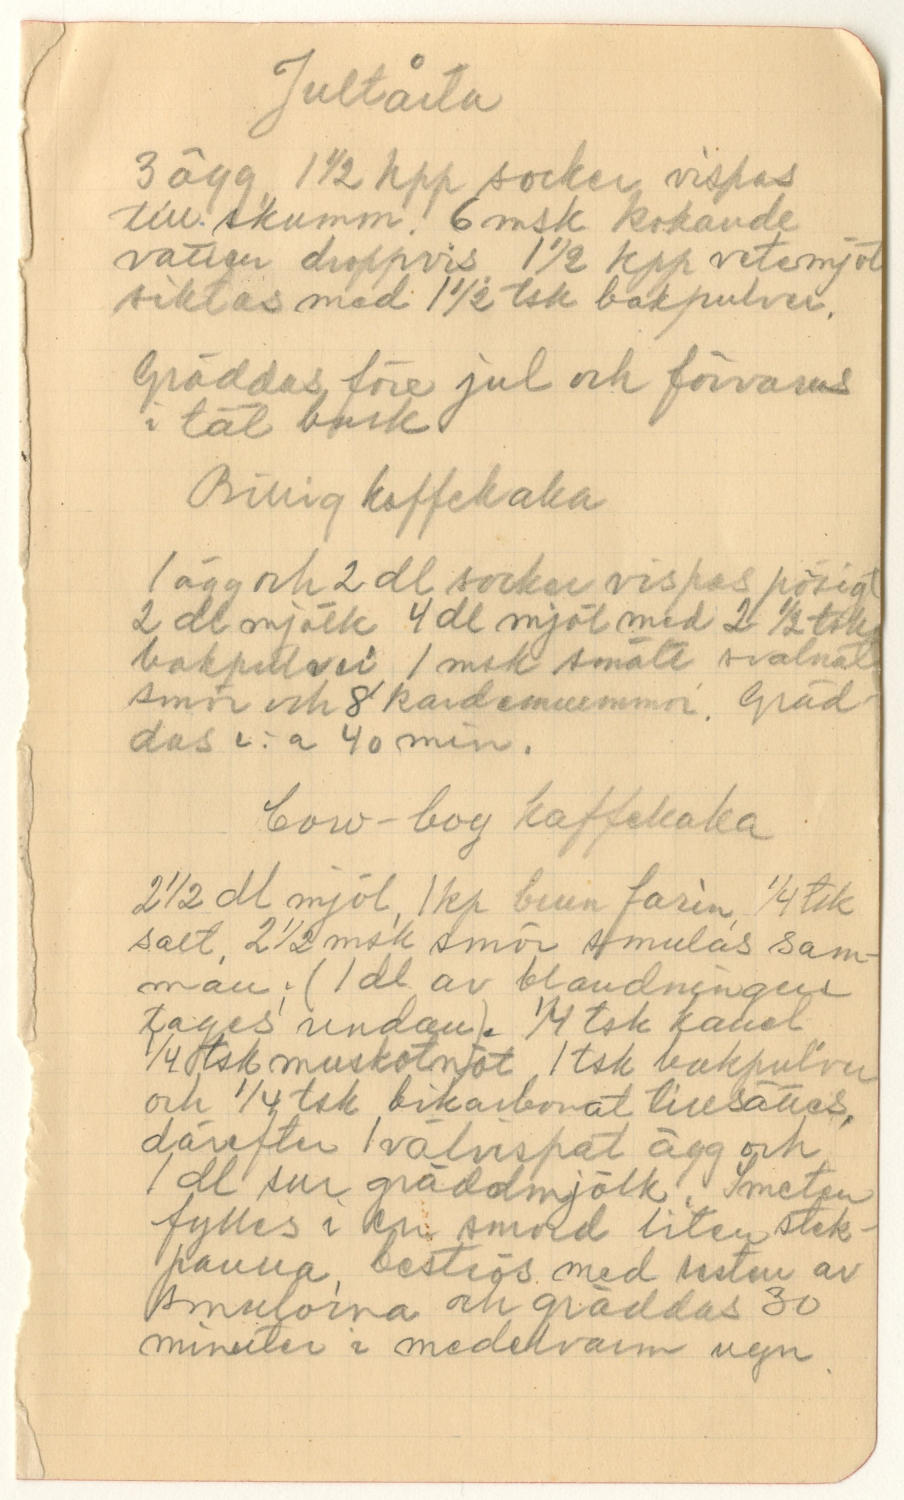 Jultårta
3 ägg, 1 1/2 kpp socker vispas
till skumm. 6 msk kokande
vatten droppvis 1 1/2 kpp vetemjöl
siktas med 1 1/2 tsk bakpulver.
Gräddas före jul och förvaras
i tät burk
Billig kaffekaka
1 ägg och 2 dl socker vispas pösigt
2 dl mjölk 4 dl mjöl med 2 1/2 tsk
bakpulver 1 msk smält svalnat
smör och 8 kardemummor. Gräd-
das c:a 40 min.
Cow-boy kaffekaka
2 1/2 dl mjöl, 1 kp brun farin, 1/4 tsk
salt, 2 1/2 msk smör smulas sam-
man; (1 dl av blandningen
tages undan). 1/4 tsk kanel
1/4 tsk muskotnöt, 1 tsk bakpulver
och 1/4 tsk bikarbonat tillsättes,
därefter 1 välvispat ägg och
1 dl sur gräddmjölk. Smeten
fylles i en smord liten stek-
panna, beströs med resten av
smulorna och gräddas 30
minuter i medelvarm ugn.